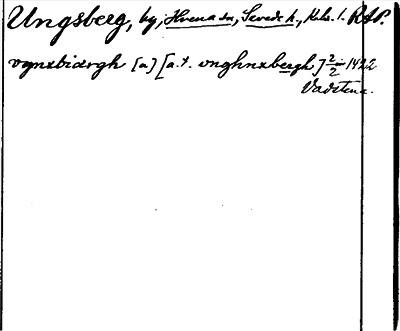 Ungsberg, by, Hvena sn, Sevede h., Kalm. l. RAP.
vgnxbiærgh [a] [a.t. vnghnxbergh] 2/2 1422
Vadstena.